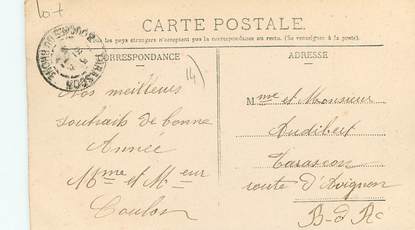 107
CARTE POSTALE
Tous les pays étrangers n'acceptent pas la correspondance au recto. (Se renseigner à la poste).
CORRESPONDANCE
ADRESSE
TARASCON
BOUCHES DU RHONE
14
Nos meilleurs
souhaits de bonne
Année
Mme et Meur
Coulon
Mme et Monsieur
Audibert
Tarascon
route d'Avignon
B-d R